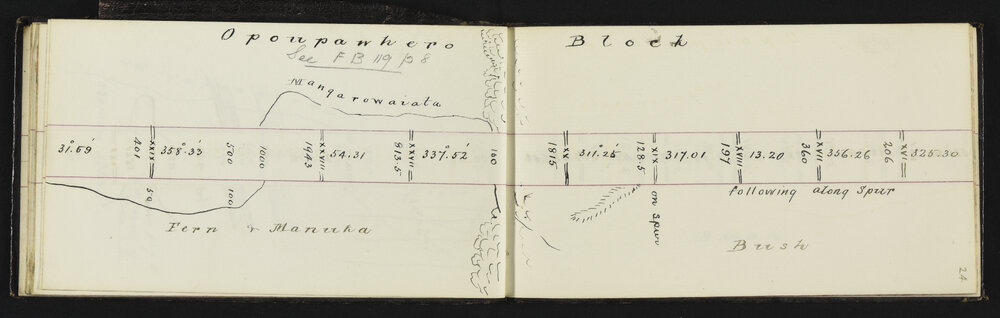 Opoupawhero Block
See F B 119 p 8
Mangarowaiata
31°.59' 201 XXIX 358°.33' 500 1000 1943 XXVIII 54.31 813.5 XXVII 337°.52' 160 1815 XX 311°.25' 128.5 XIX 317.01 197 XVIII 13.20 360 XVII 356.26 206 XVI 325.30
50 100 on spur following along Spur
Fern & Manuka
Bush
24